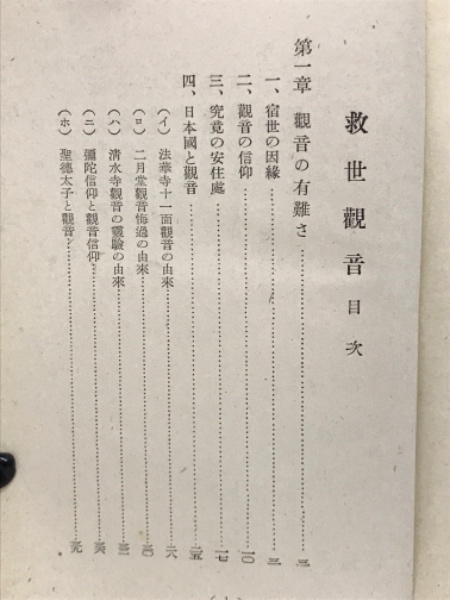 救世觀音 目次
第一章 觀音の有難さ……三
一、宿世の因緣……三
二、觀音の信仰……一〇
三、究竟の安住處……一七
四、日本國と觀音……二五
(イ) 法華寺十一面觀音の由來……二六
(ロ) 二月堂觀音悔過の由來……三〇
(ハ) 淸水寺觀音の靈驗の由來……三三
(ニ) 彌陀信仰と觀音信仰……三六
(ホ) 聖德太子と觀音……三九